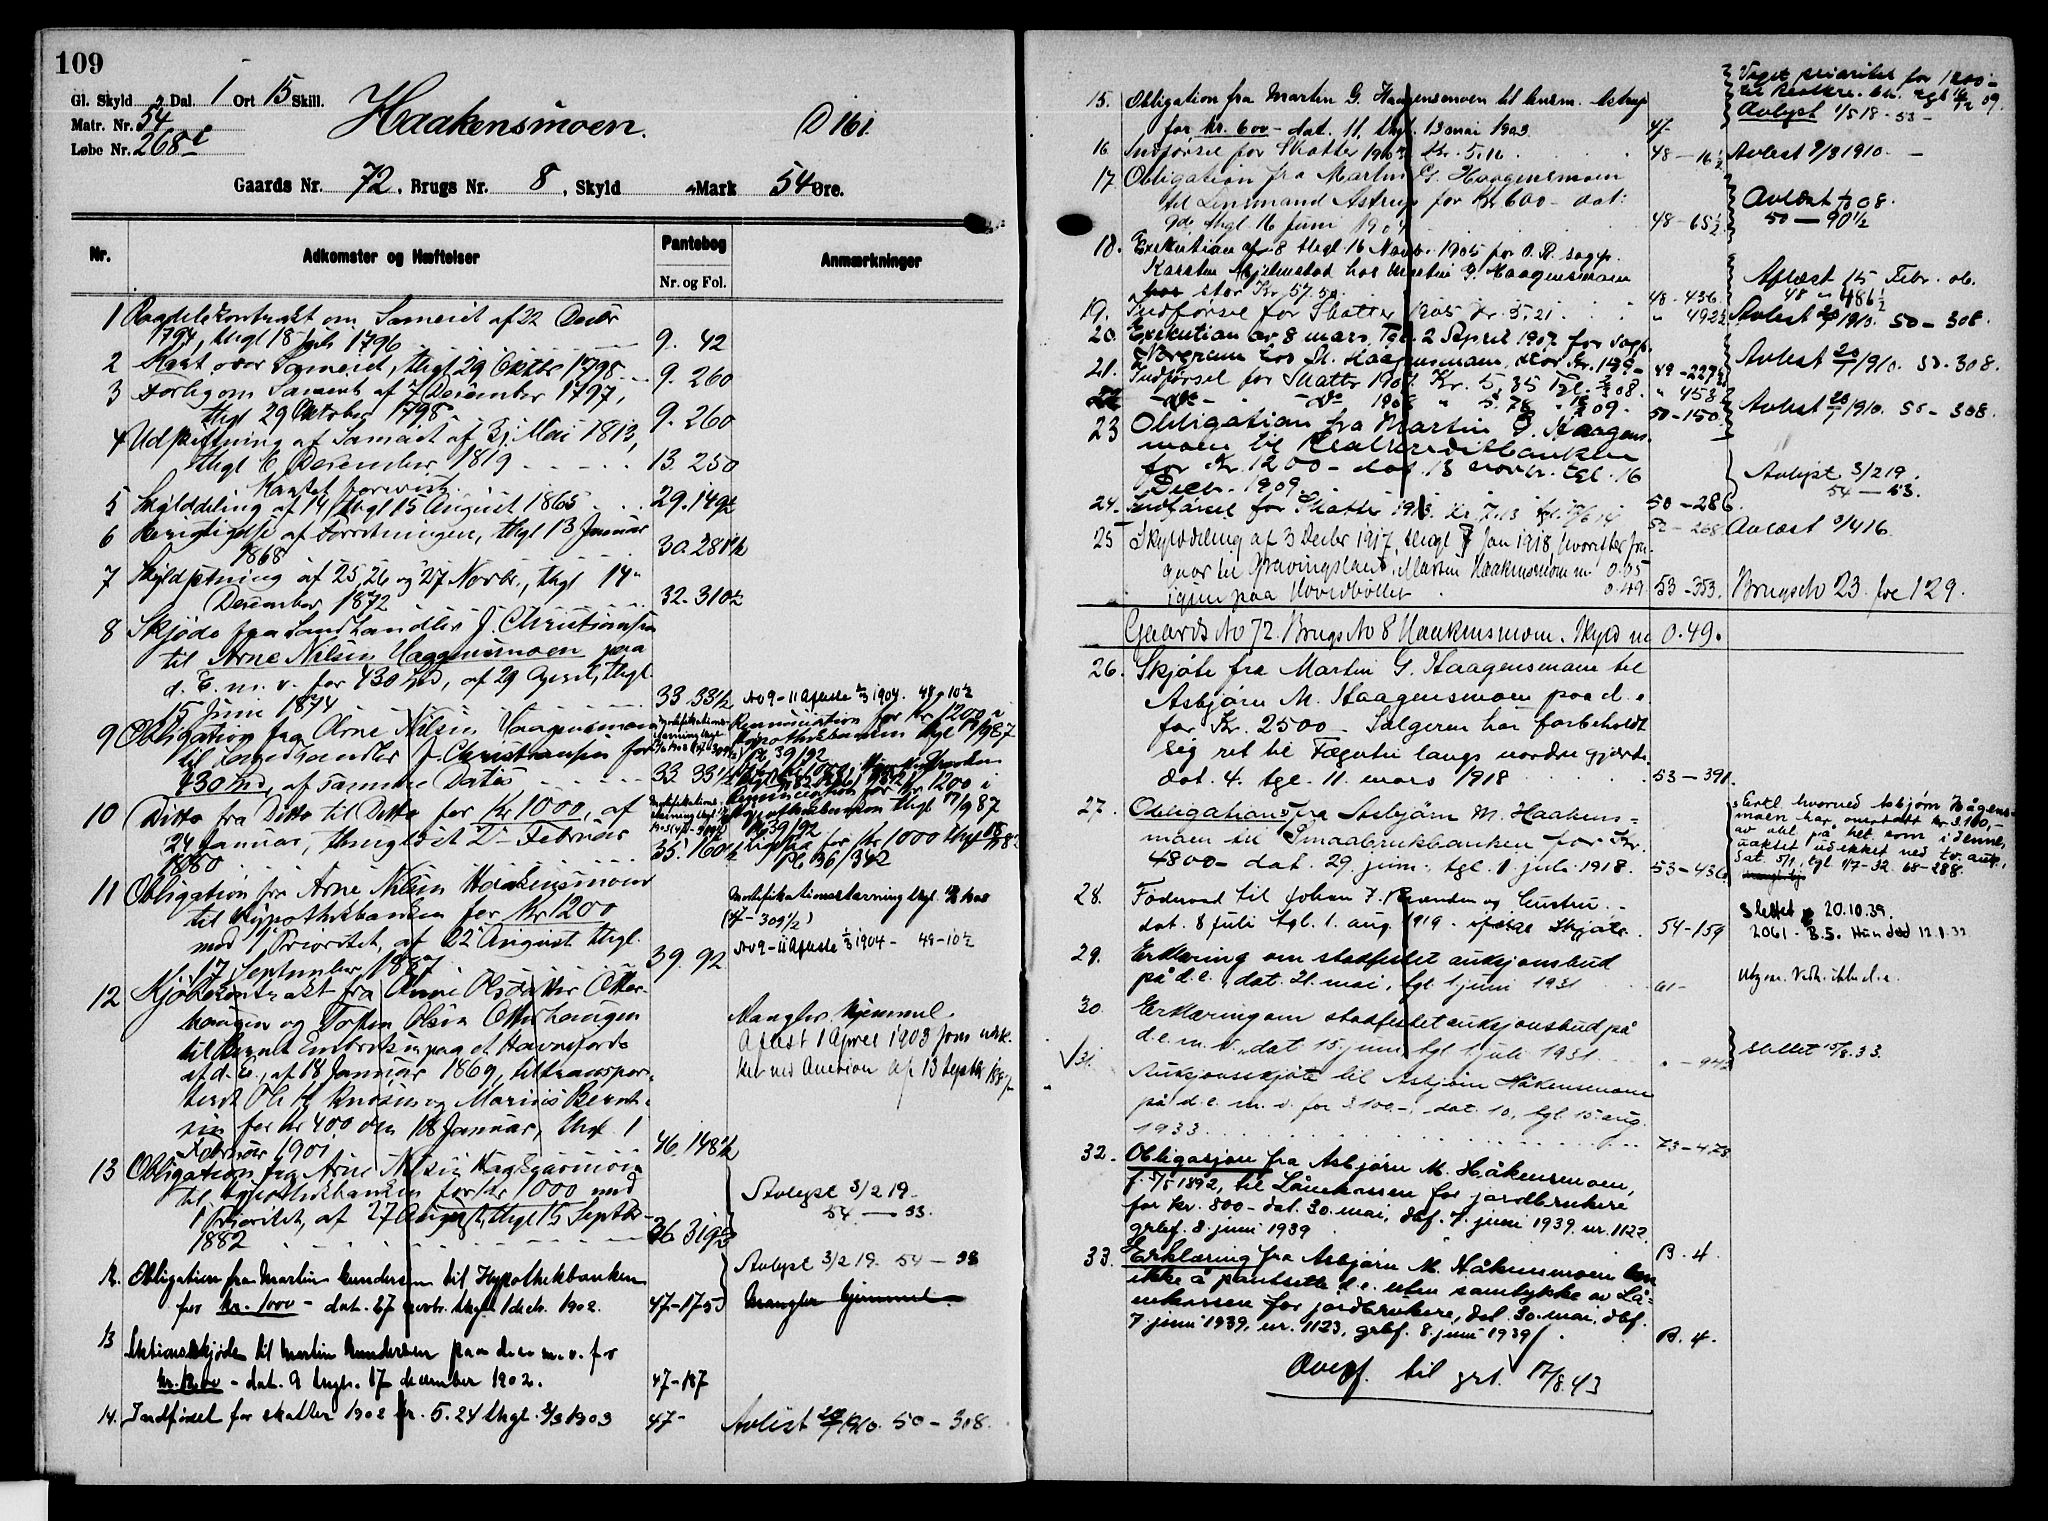 109
Gl. Skyld " Dal. 1 Ort 15 Skill.
Matr. Nr. 54
Løbe Nr. 268 i
Haakensmoen.
D 161.
Gaards Nr. 72, Brugs Nr. 8, Skyld " Mark 54 Øre.
Nr.
Adkomster og Hæftelser
Pantebog
Nr. og Fol.
Anmærkninger
1 om Sameiet af 22 Decbr
1794, thgl 18 1796 9. 42
2 over Sameiet, thgl 29 Oktbr 1798 9. 260
3 Forlig om Sameiet af 7 December 1797,
thgl 29 Oktober 1798 9. 260
4 Udskiftning af Sameiet af 31 Mai 1813,
thgl 6 December 1819 13. 250
5 Skylddeling af 14 thgl 15 August 1865 29. 149½
6 Berigtigelse af Forretningen, thgl 13 Januar
1868 30. 281½
7 Skyldsetning af 25, 26 og 27 Novbr., thgl 14
December 1872 32. 310½
8 Skjøde fra Landhandler J. Christiansen
til Arne Nilsen Haagensmoen paa
d. E. m. v. for 430 Spd, af 29 April, thgl.
15 Juni 1874 33. 33½
No 9-11 Aflæste 1/3 1904. 48-10½
9 Obligation fra Arne Nilsen Haagensmoen
til Landhandler J. Christiansen for
430 Spd, af samme Datis 33 33½
Renunciation for Kr 1200 i
Hypothekbanken thgl 17/9 87
Pl. 39/92
10 Ditto fra Ditto til Ditto for Kr 1000, af
24 Januar, thinglæst 2 Februar
1880 35. 160½
Renunciation for Kr 1200 i
Hypothekbanken thgl 17/9 87
Pl. 39/92
Pl. 36/342
11 Obligation fra Arne Nilsen Haakensmoen
til Hypothekbanken for Kr 1200
med 1 Prioritet, af 22 August thgl.
17 September 1887 39. 92
(47-309½)
No 9-11 Aflæste 1/3 1904 - 48-10½
12 Kjøbekontrakt fra Anne Olsdatter Otter-
haugen og Torsten Olsen Otterhaugen
til Bernt Embretsen paa et Havnefords
af d. E., af 18 Januar 1869, tiltranspor-
teret Ole H. Knudsen og Marius Bernt-
sen for Kr 400 den 18 Januar, thgl. 1
Februar 1901 46. 148½
Mangler Hjemmel.
Aflæst 1 April 1903 som
ved Auction af 13 Septbr
13 Obligation fra Arne Nilsen Haagensmoen
til Hypothekbanken for Kr 1000 med
1 Prioritet, af 27 August, thgl 15 Septbr
1882 36 319½
Avlyst 3/2 19.
54 — 53.
12. Obligation fra Martin Gundersen til Hypothekbanken
for kr. 1000 - dat. 27 novbr. thgl. 1 decb. 1902. 47-175
Avlyst 3/2 19. 54 - 53
Mangler hjemmel.
13 Auktionsskjøde til Martin Gundersen paa d. e. m. v. for
dat. 9 thgl. 17 december 1902. 47-187
14. Indførsel for skatter 1902 kr. 5.24 thgl. 3/3 1903 47-
Avlest 20/7 1910. 50 - 308.
15. Obligation fra Martin G. Haagensmoen til lensm. Astrup
for kr. 600 - dat. 11, thgl. 13 mai 1903 47-
Veget prioritet for 1200
Avlyst 1/5 18 - 53 -
16 Indførsel for Skatter 1903 Kr. 5.16 48 - 16½
Avlest 9/8 1910. -
17 Obligation fra Martin G. Haagensmoen
til Lensmand Astrup for Kr 600 - dat:
9de, thgl 16 Juni 1904 48 - 65½
50 — 90½
18. Exekution af 8 thgl 16 Novbr. 1905 for O. R. sagf.
Karsten Hjelmstad hos Martin G. Haagensmoen
stor Kr. 57.50. 48 - 436
Aflæst 15 Febr. 06.
48 " 486½
19. Indførsel for Skatter 1905 Kr. 5.21 " 492½
Avlest 20/7 1910. 50 - 308.
20. Exekution av 8 mars, Tgl. 2 April 1907 for sagf.
hos M. Haagensmoen, stor Kr. 49 - 227½
Avlest 20/7 1910. 50 - 308.
21. Indførsel for Skatter 1907. Kr. 5.35 Tgl. 08. " 458
22 - do - - do 1908 " 5.78 " 09. 50 - 150
Avlest 20/7 1910. 50 - 308.
23 Obligation fra Martin G. Haagens-
moen til Realkreditbanken
for Kr. 1200 - dat. 13 novbr. tgl. 16
Decb. 1909. 50 - 286
Avlyst 3/2 19.
54 — 53.
24. Indførsel for Skatter 1913. Kr 7.13 52 - 268
Avlæst 416.
25 Skylddeling af 3 Decbr 1917, thingl 7 Jan 1918, hvorefter fra-
gaar til Gravingsland, Martin Haakensmoen m. 0.05
igjen paa Hovedbøllet 0.49 53 - 353.
Brugs No 23. foe 129.
Gaards No 72. Brugs No 8 Haakensmoen. Skyld m 0.49.
26. Skjøte fra Martin G. Haagensmoen til
Asbjørn M. Haagensmoen paa d. e
for Kr. 2500 - Sælgeren har forbeholdt
sig ret til Fægutu langs nordre gjærde
dat. 4. tgl. 11. mars 1918 53 - 391.
27. Obligation fra Asbjørn M. Haakens=
moen til Smaabrukbanken for Kr.
4800 - dat. 29. juni, tgl. 1 juli 1918. 53 - 436
Erkl. hvorved Asbjørn Hågens-
moen har overtatt kr 3.100,-
av obl. på tbt. som i denne,
uaktet utslettet ved tv. auk.,
dat. 5/1, tgl. 1/7-32. 68-288.
28. Føderaad til Johan J. Brænden og hustru.
dat. 8 juli tgl. 1. aug. 1919 - ifølge Skjøte 54 - 159
Slettet 20.10.39.
2061 -
29. Erklæring om stadfestet auksjonsbud
på d. e., dat. 21. mai, tgl. 1 juni 1931
30. Erklæring om stadfestet auksjonsbud på
d. e. m. v., dat. 15. juni, tgl 1 juli 1931. " - 942
Slettet 15/8. 33.
√ 31. Auksjonsskjøte til Asbjørn Håkensmoen
på d. e. m. v. for 3100 -, dat. 10., tgl. 15. aug.
1933 73 - 478
32. Obligasjon fra Asbjørn M. Håkensmoen,
f. 1892, til Lånekassen for jordbrukere
for kr. 800 - dat. 30. mai, dbf. 7. juni 1939. nr. 1122
grbf. 8. juni 1939 B. 4
33. Erklæring fra Asbjørn M. Håkensmoen om
ikke å pantsette d. e. uten samtykke av Lå=
nekassen for jordbrukere, dat. 30. mai, dbf.
7 juni 1939, nr. 1123, grbf. 8. juni 1939 B. 4.
Overf. til grb. 17/8. 43